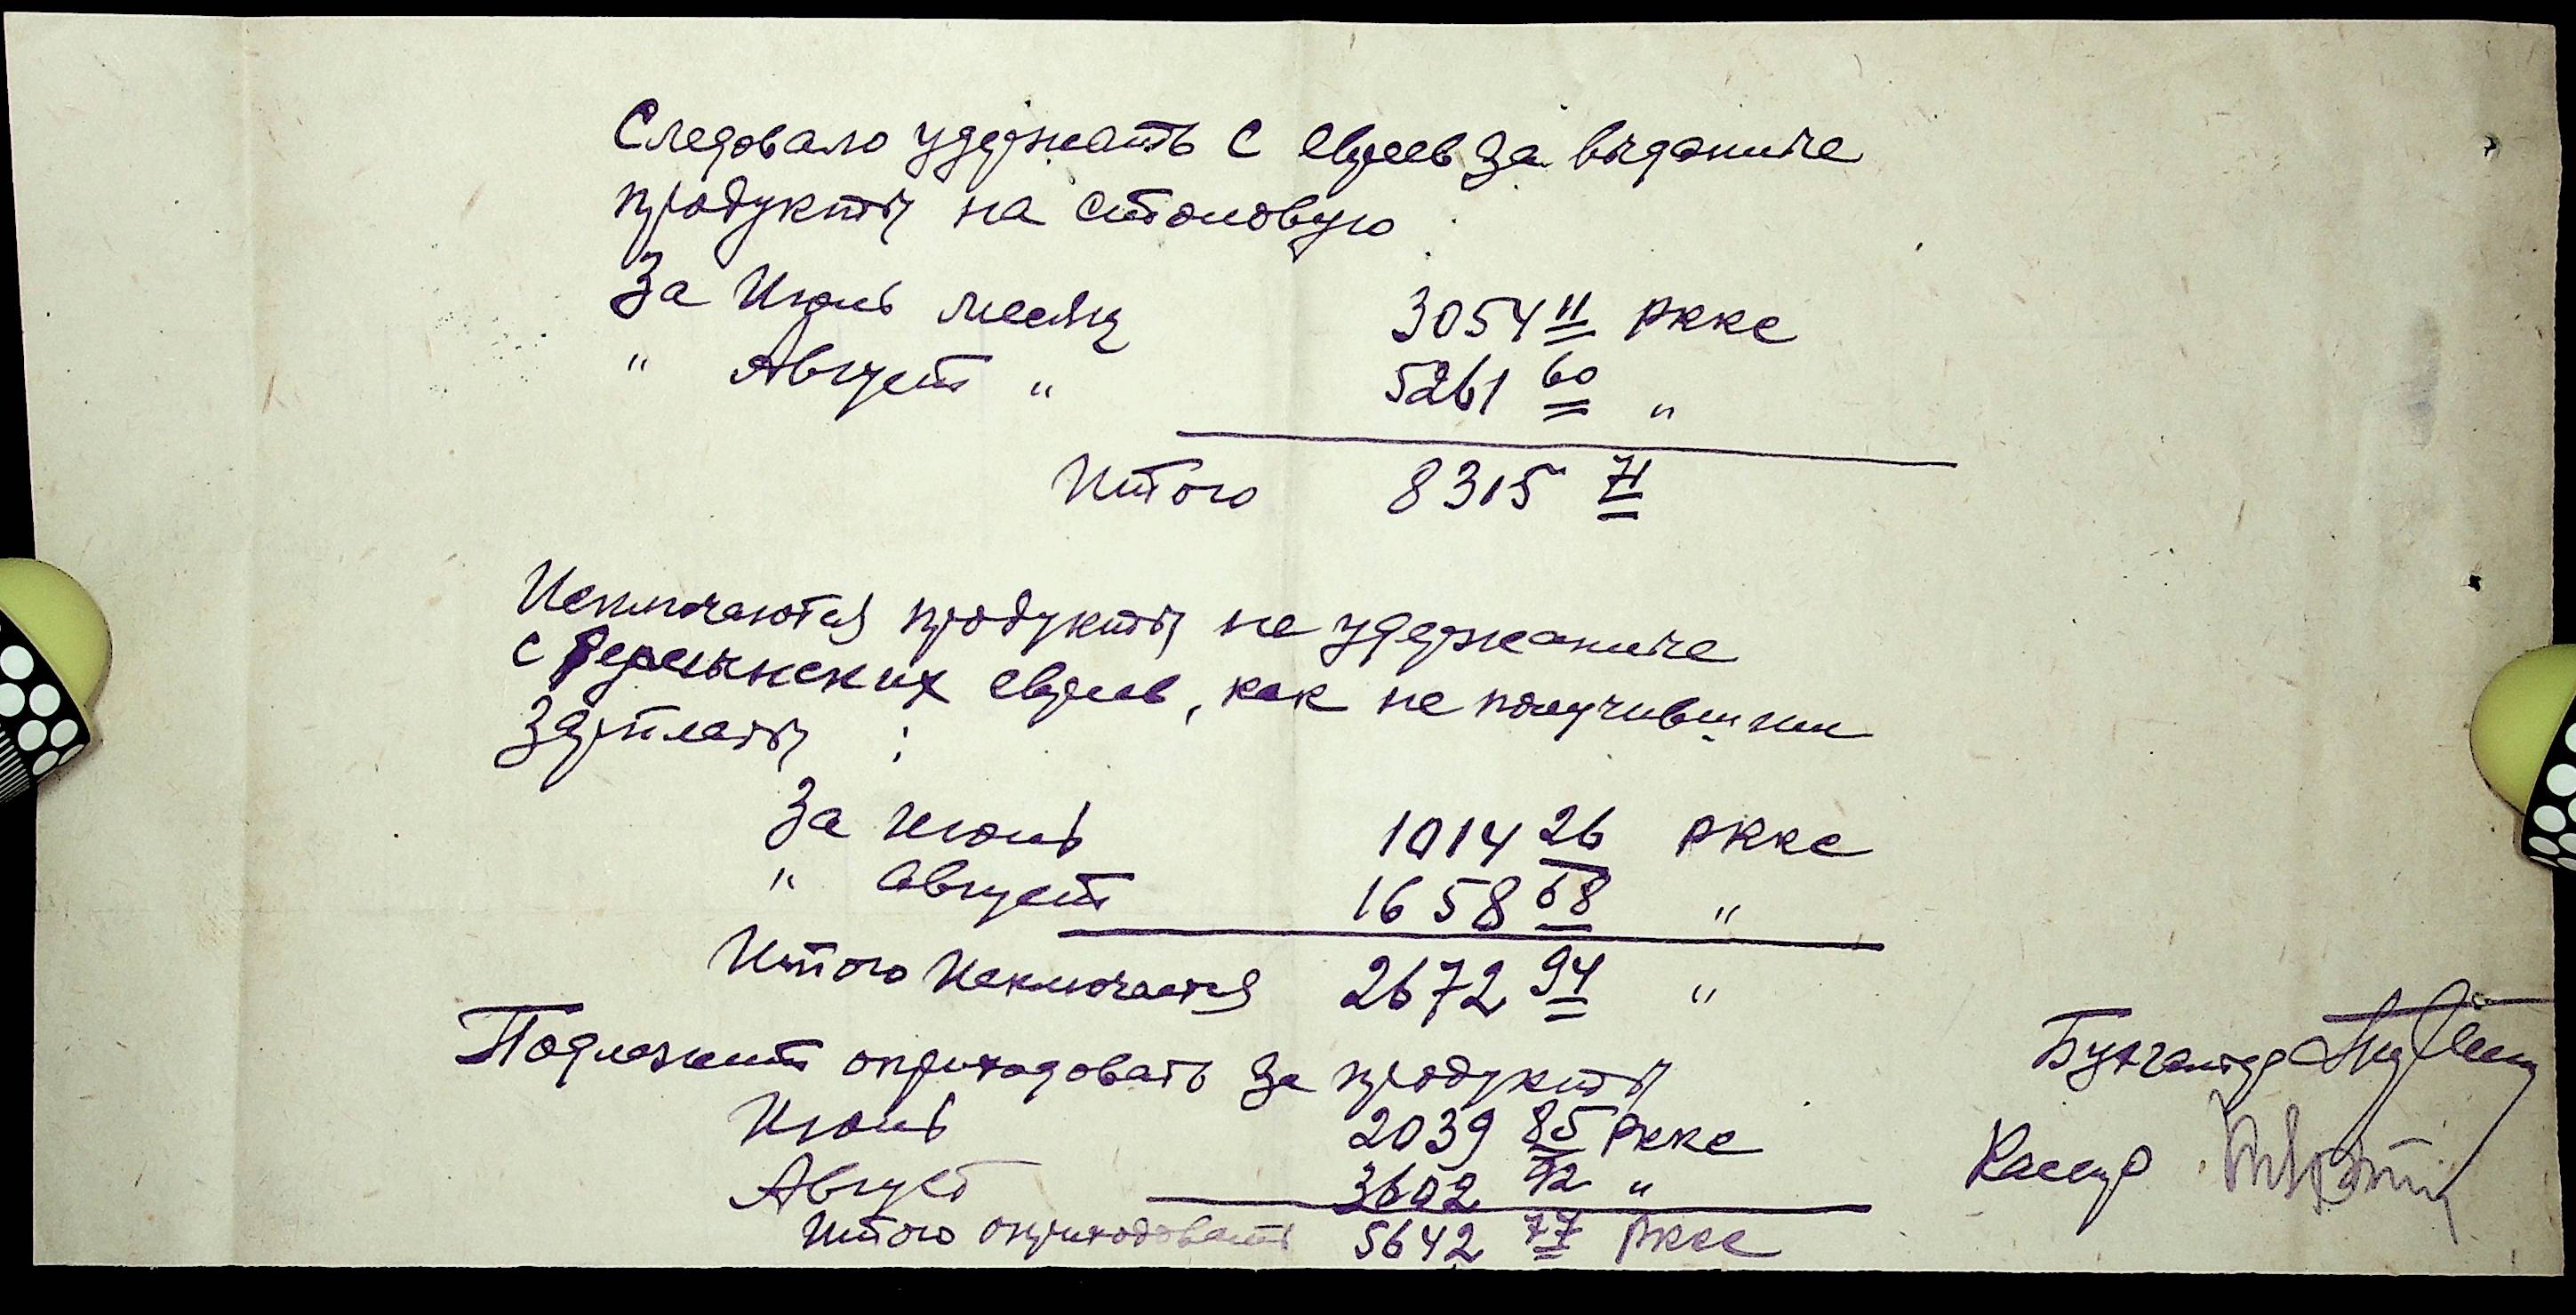 Следовало удержать с евреев за выданные
продукты на столовую
За Июль месяц 3054 11 РККС
" Август " 5261 60 "
Итого 8315 71
Исключаются продукты не удержаные
с румынских евреев, как не получивших
зарплаты :
За июль 1014 26 РККС
" август 1658 68 "
Итого исключается 2672 94 "
Подлежит оприходовать за продукты
Июль 2039 85 РККС
Август 3602 92 "
Итого оприходовать 5642 77 РККС
Бухгалтер
Кассир